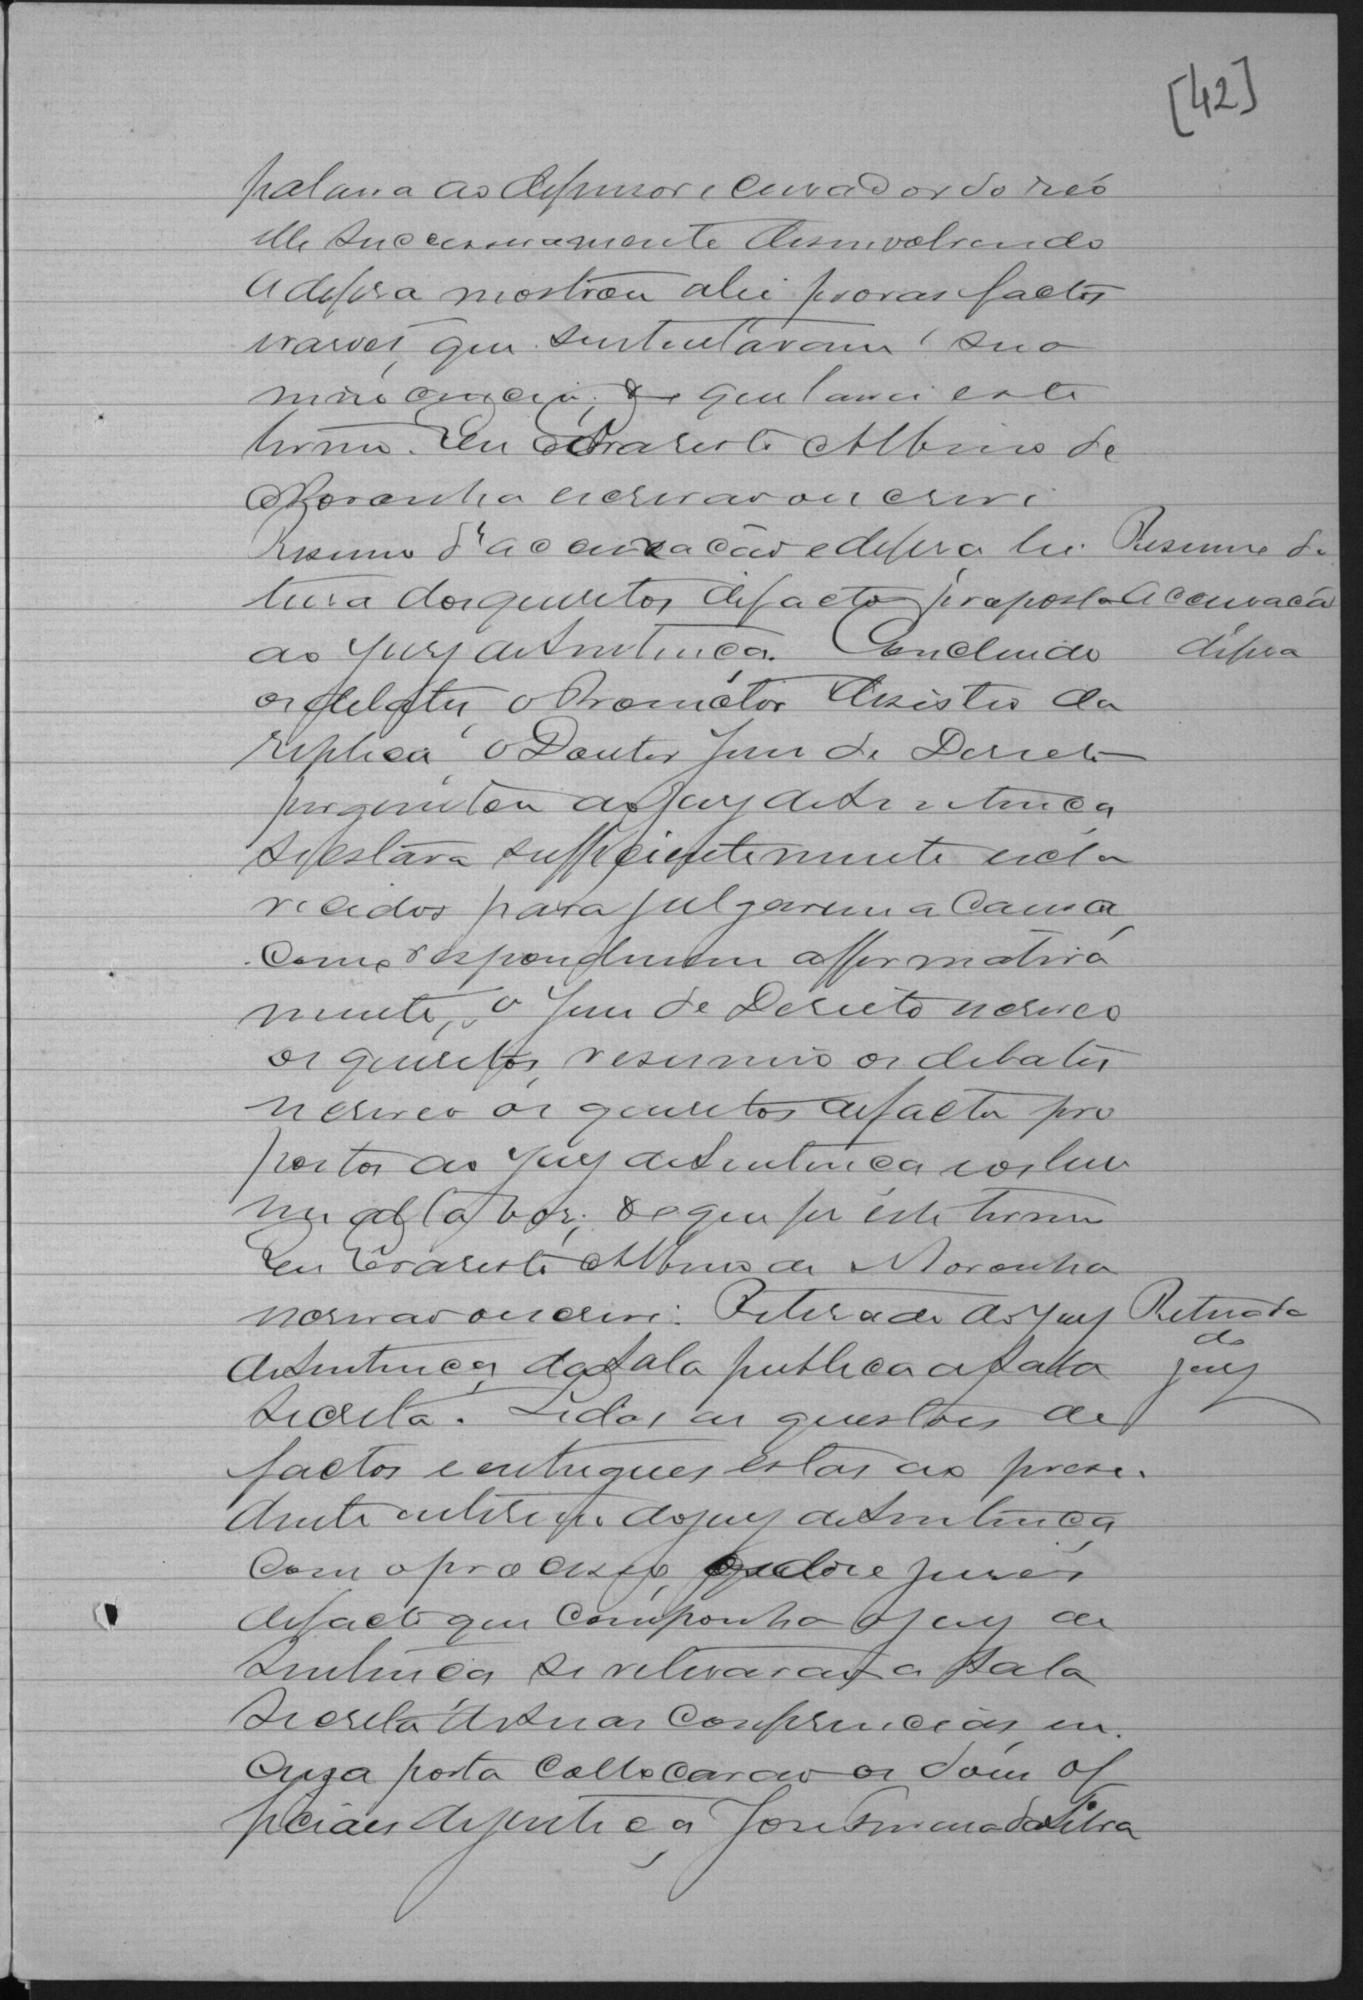 [42]
palavra ao defensor e curador do reó
elle successivamente desinvolvendo
a defesa mostrou a lei provas factos
que sustentavam sua
innocencia; de que lavrei este
termo. Eu Evaristo Albino de
Noronha escrivão o escrevi
Resumo d'accusação e defesa, lei
Resumo da
tura dos quesitos de facto proposto
accusacão
ao jury de sentença. Concluido
defesa
os debates, o Promotor desistio da
replica, o Doutor Juis de Dereito
perguntou ao jury de sentença
se estava sufficientemente escla
recidos para julgarem a causa
como responderam affirmativa
mente, o Juis de Dereito escreveo
os quesitos, resumio os debates
escreveo os quesitos de facto pro
postos ao jury de sentença e os leu
em alta vos; de que fis este termo
Eu Evaristo Albino de Noronha
escrivão o escrevi. Reterada do jury
Reterada
do
jury
de sentença da sala publica a sala
secreta. Lidas as questões de
factos e entregues estas ao prese
dente interino do jury de sentença
com o processo, os dose jurés
de facto que componha o jury de
sentença se retirarão a sala
secreta de suas conferencias, em
cuja porta collocarão os dois of
ficiaes de justiça José da Silva